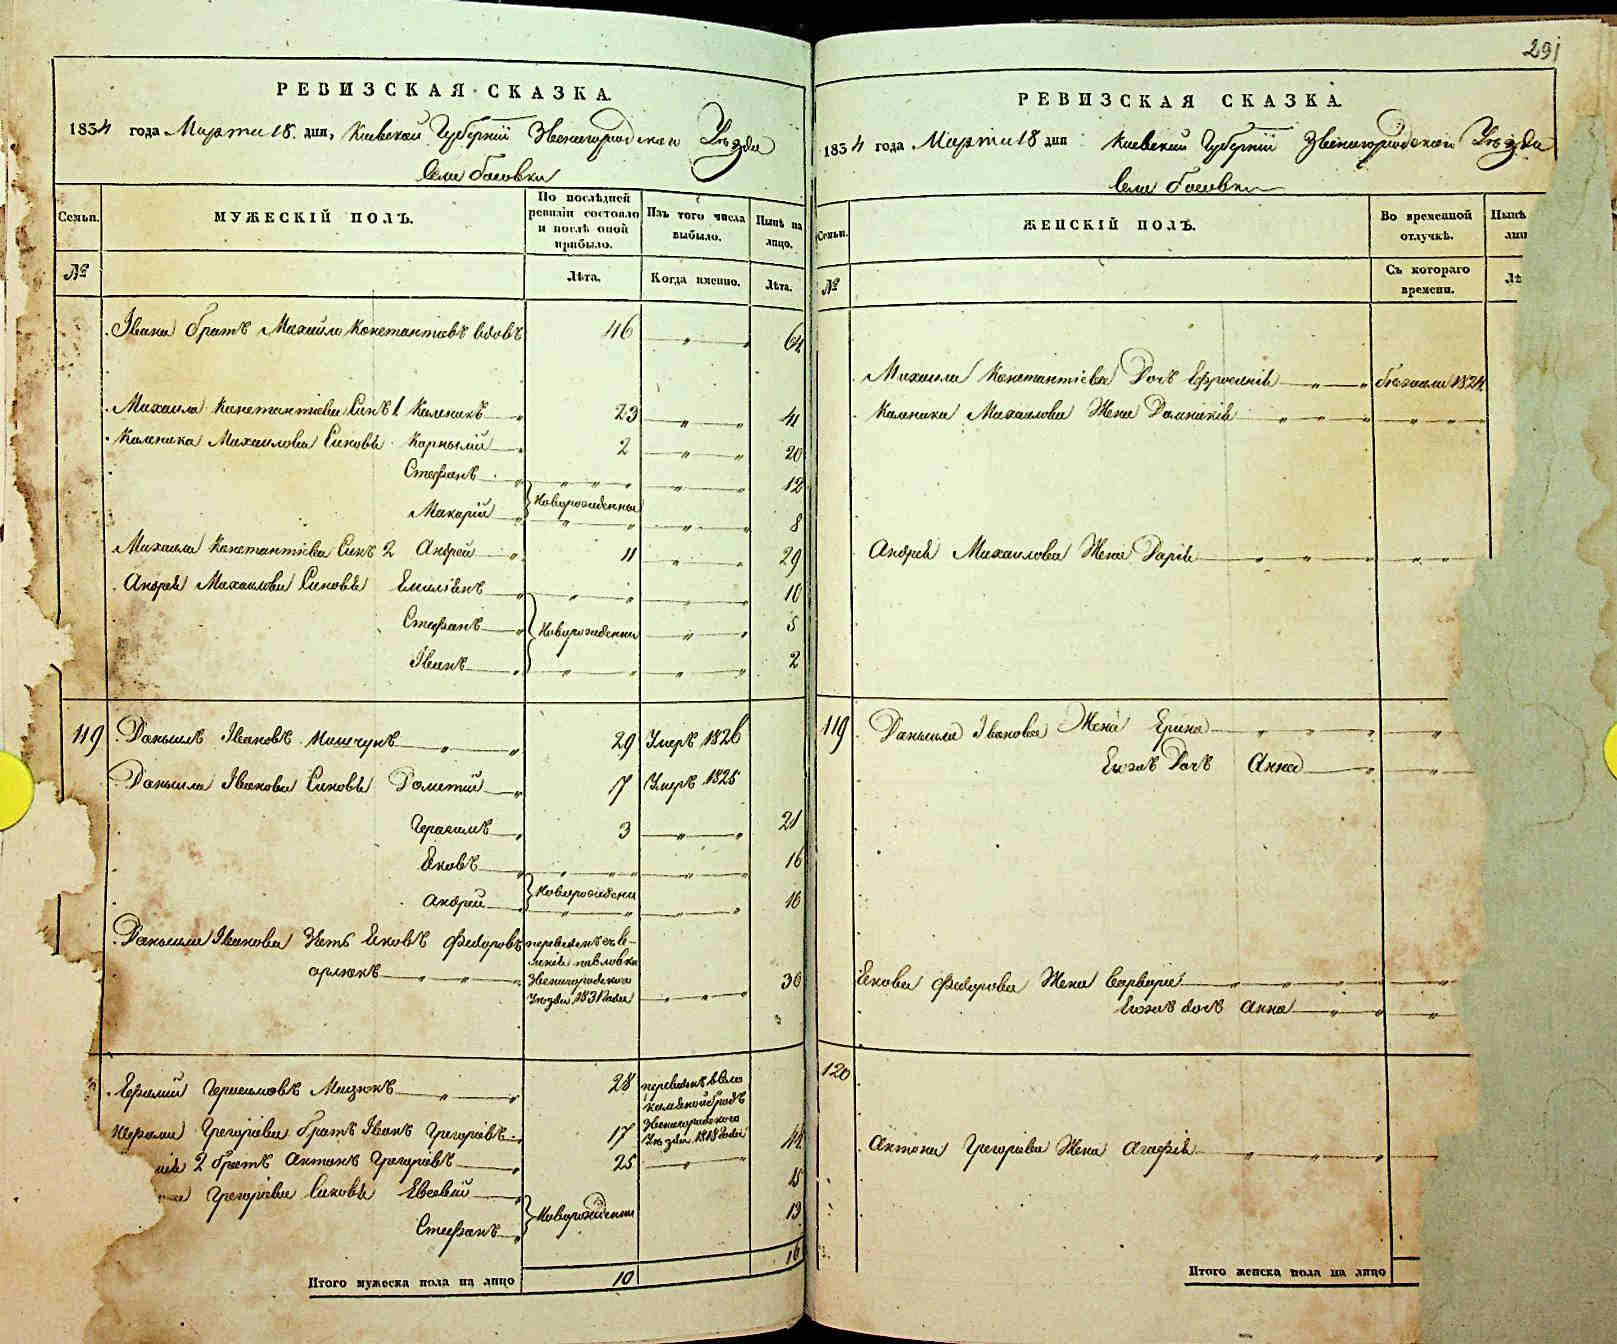 291
РЕВИЗСКАЯ СКАЗКА.
1834 года Марта 18 дня, Киевской Губерніи Звенигородскаго Уѣзда
Села Босовки
Семьи.
МУЖЕСКІЙ ПОЛЪ.
По послѣдней ревизіи состояло и послѣ оной прибыло.
Изъ того числа выбыло.
Нынѣ на лицо.
№
Лѣта.
Когда именно.
Лѣта.
Ивана братъ Михайло Константіевъ вдовъ 46 " 64
Михаила Константіева Синъ 1 Каленикъ " 23 " " 41
Каленика Михаилова Синовья Корнылій 2 " " 20
Стефанъ " " " " " " 12
Новорожденны
Макарій " " " " " 8
Михаила Константіева Синъ 2 Андрей " 11 " " 29
Андрея Михаилова Синовья Емиліянъ " " " " " 10
Стефанъ " Новорожденны " " 5
Іванъ " " " " " 2
119 Данылъ Івановъ " " 29 Умеръ 1826
Даныла Іванова Синовья Дометій " 7 Умеръ 1825
Герасимъ " 3 " " 21
Яковъ " " " " " " 16
Новорожденны
Андрей " " " " " 16
Данылы Іванова Зять Яковъ Федоровъ переведенъ съ
Павловки
орлюкъ " " " Звенигородского
Уѣзда 1831 года " " " 30
Ефимій Герасимовъ " " 28 переведенъ в село
Звенигородского
Грегоріева братъ Іванъ Грегоріевъ " 17 Уѣзда 1818 года 44
2 братъ Антонъ Грегоріевъ " 25 " "
Грегоріева Синовья Евсевій " 15
Новорожденны
Стефанъ " 13
Итого мужеска пола на лицо 10 16
РЕВИЗСКАЯ СКАЗКА.
1834 года Марта 18 дня Киевской Губерніи Звенигородскаго Уѣзда
Села Босовки
Семьи.
ЖЕНСКІЙ ПОЛЪ.
Во временной отлучкѣ.
Нынѣ
№
Съ котораго времени.
Михаила Константіева Дочъ Ефросинія " " бѣжала 1824
Каленика Михаилова Жена Домникія " " " " " "
Андрея Михаилова Жена Дарія " " " " "
119 Данылы Іванова Жена Ерина " " " " "
Еюжъ Дочъ Анна " "
Якова Федорова Жена Варвара " " " " "
Еюжъ дочъ Анна " " "
120
Антона Грегоріева Жена Агафія " " "
Итого женска пола на лицо